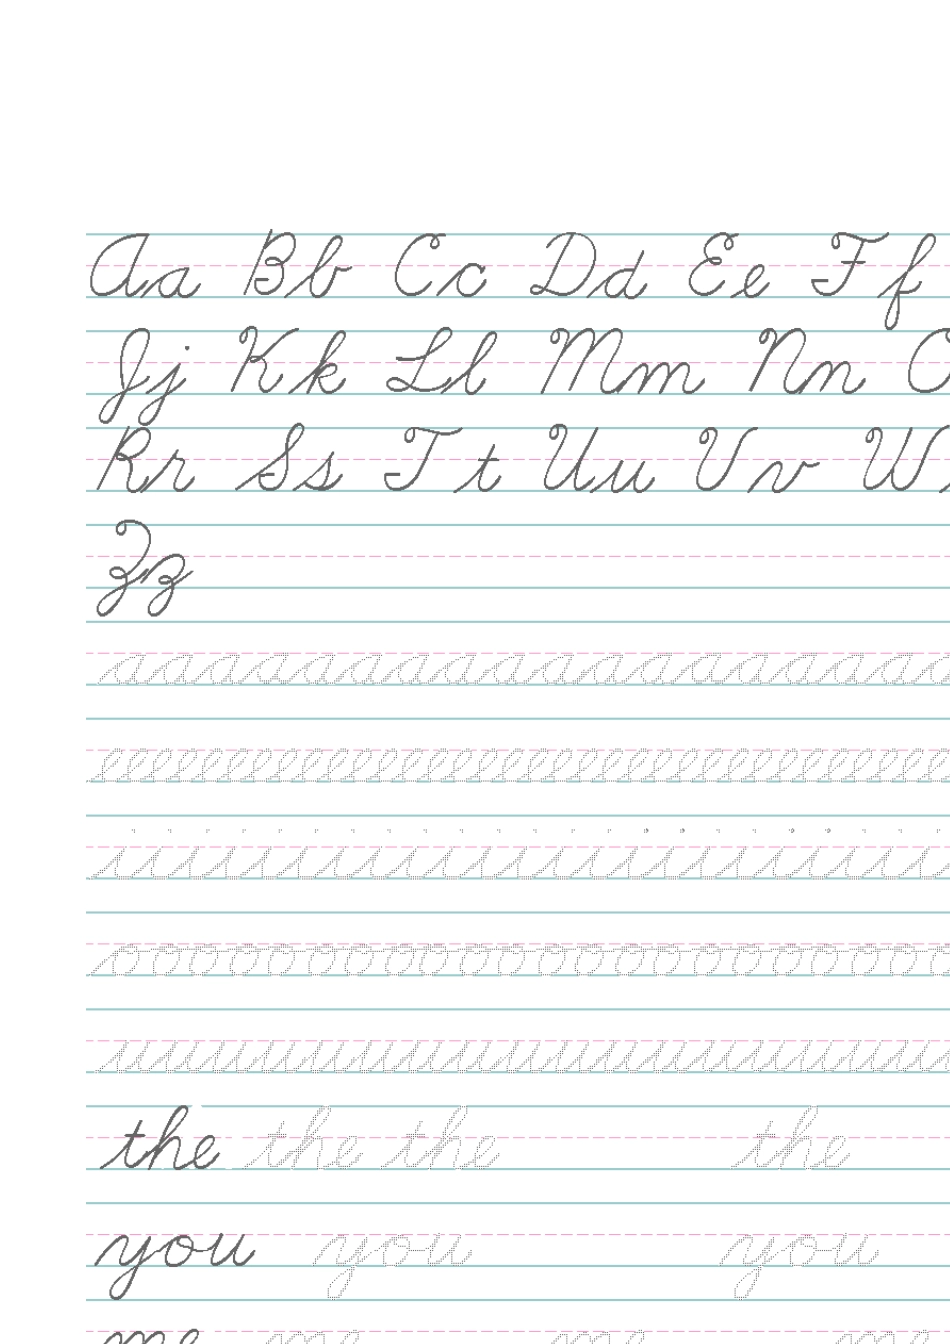 Aa Bb Cc Dd Ee Ff
Jj Kk Ll Mm Nn O
Rr Ss Tt Uu Vv W
Zz
aaaaaaaaaaaaaaaaaaaaaa
eeeeeeeeeeeeeeeeeeeeeeeeeeeeeee
iiiiiiiiiiiiiiiiiiiiiii
oooooooooooooooooooooo
uuuuuuuuuuuuuuuuuuu
the the the the
you you you
me me me me